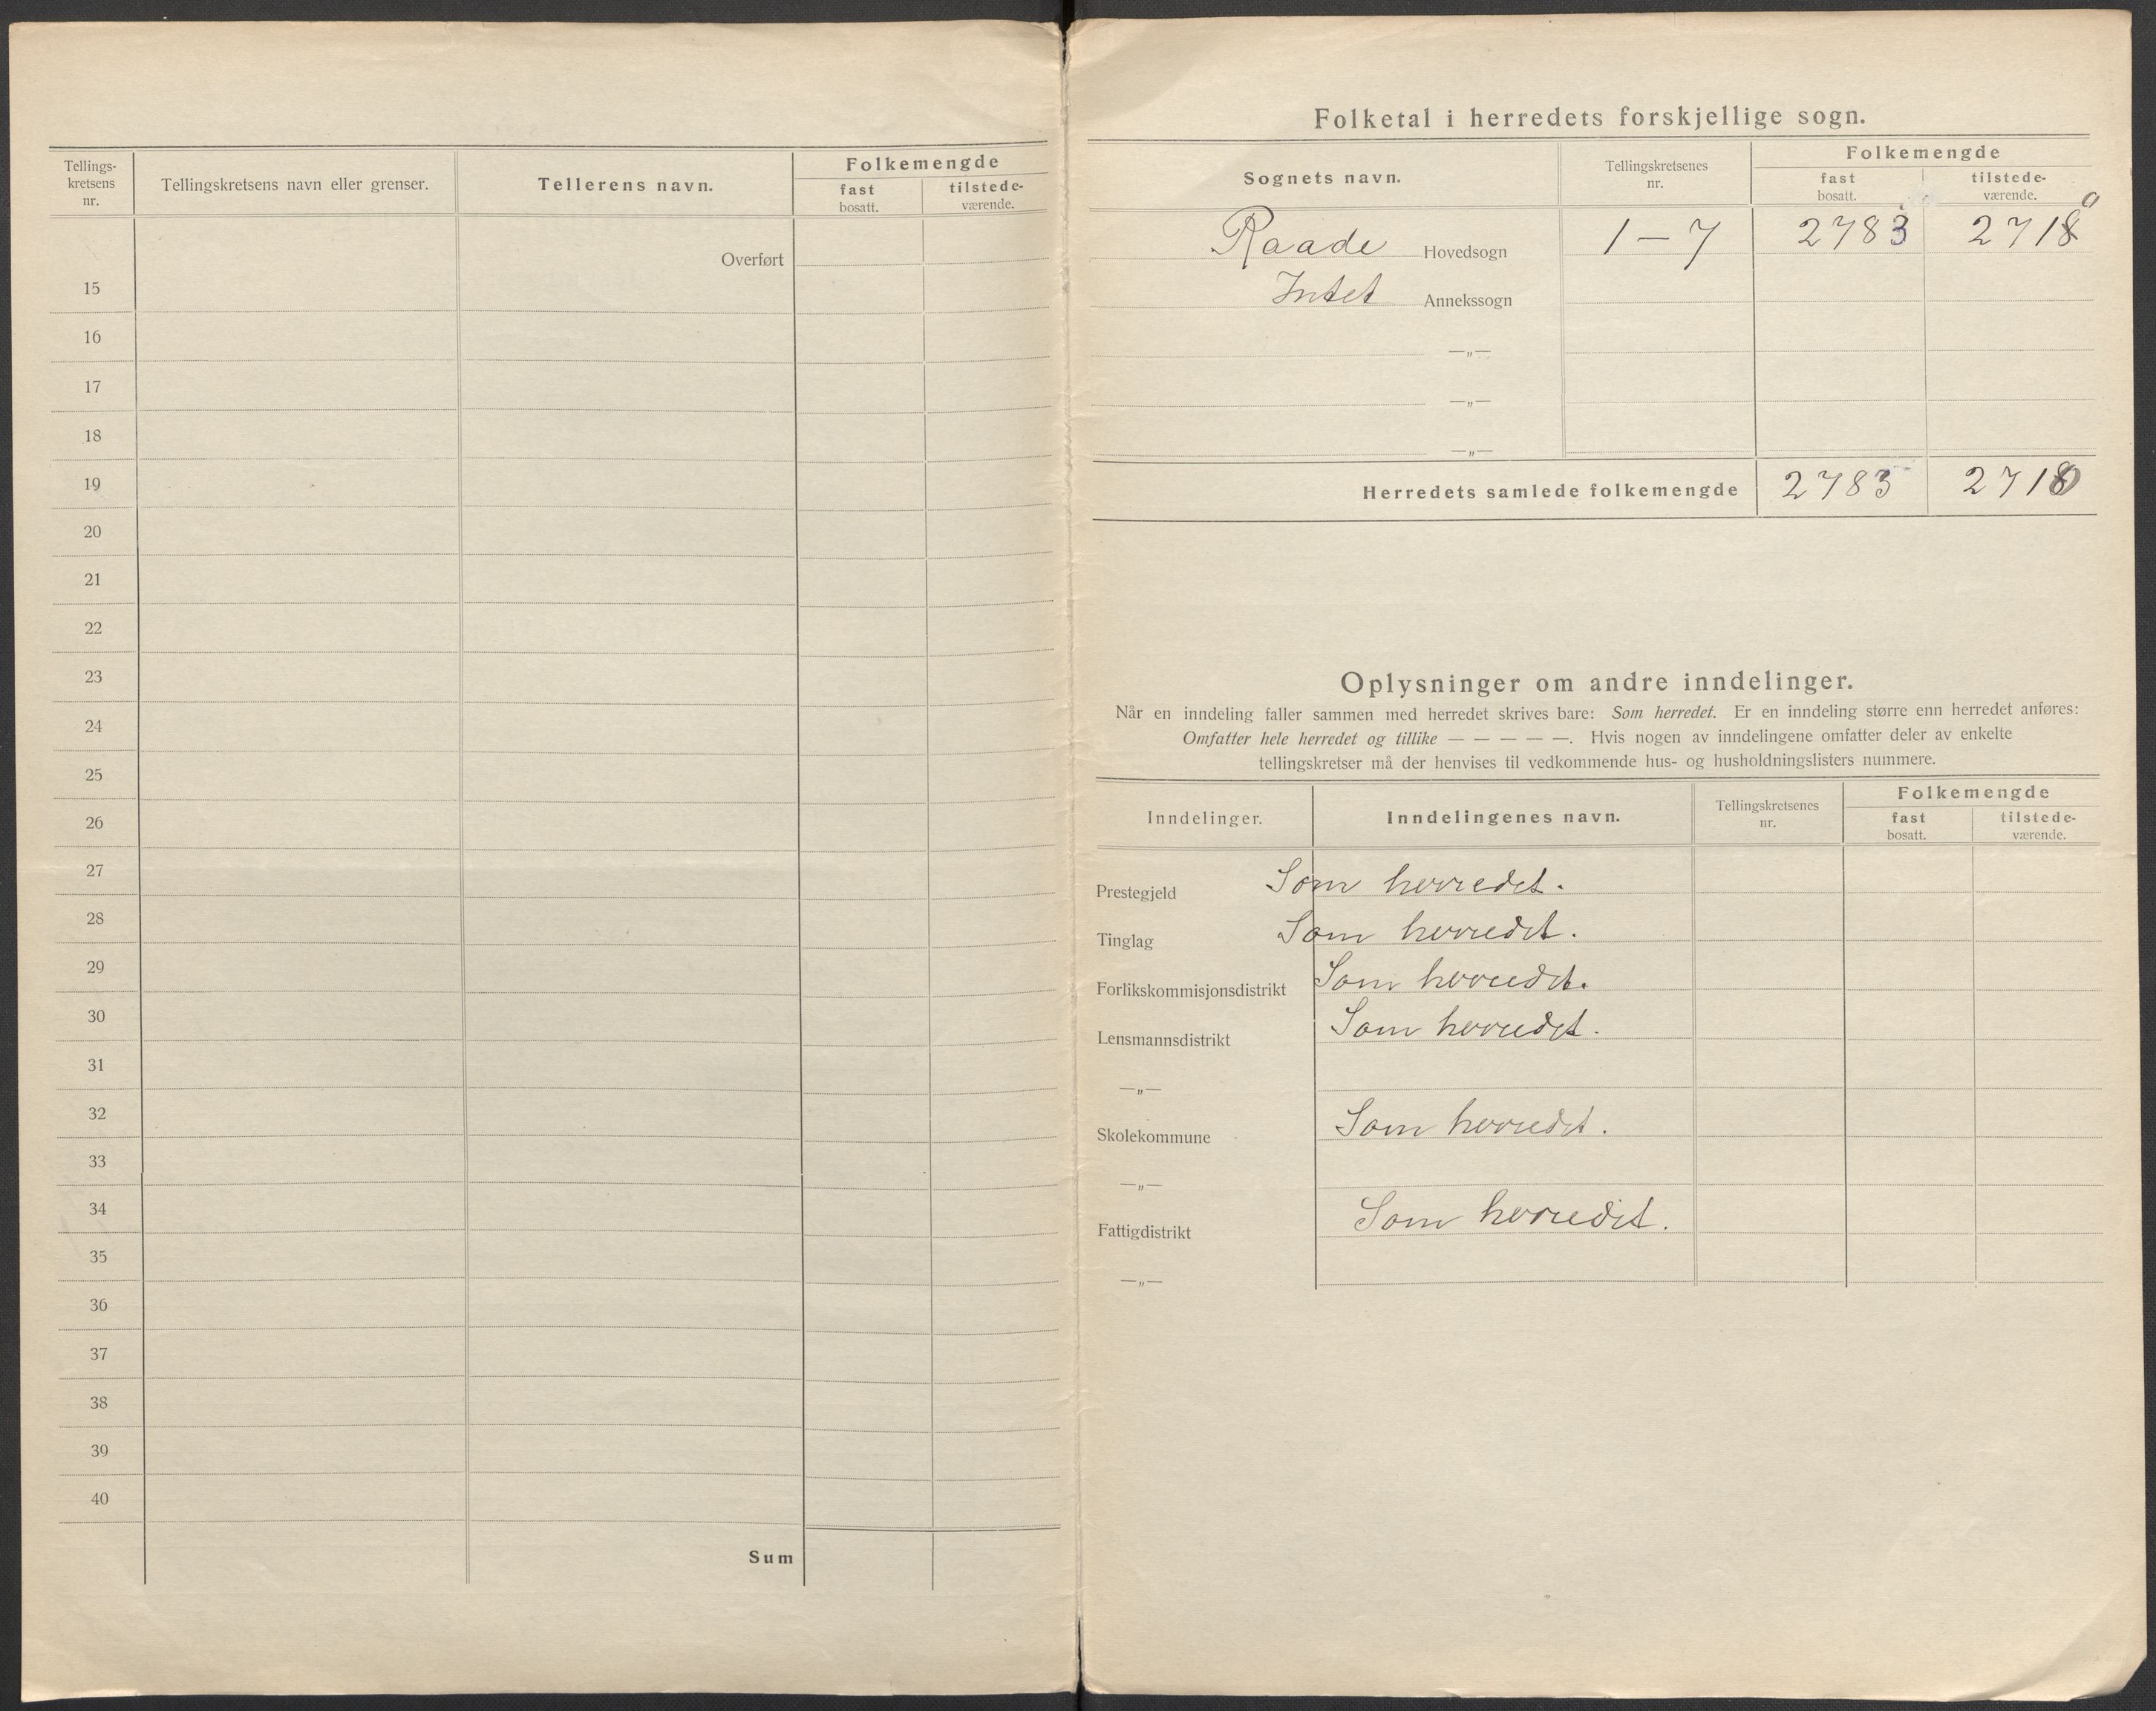 Tellings-
kretsens
nr.
Tellingskretsens navn eller grenser.
Tellerens navn.
Folkemengde
fast
bosatt.
tilstede-
værende.
Overført
15
16
17
18
19
20
21
22
23
24
25
26
27
28
29
30
31
32
33
34
35
36
37
38
39
40
Sum
Folketal i herredets forskjellige sogn.
Sognets navn.
Tellingskretsenes
nr.
Folkemengde
fast
bosatt.
tilstede-
værende.
Raade Hovedsogn 1 — 7 2783 2710
Intet Annekssogn
—„—
—„—
—„—
Herredets samlede folkemengde 2783 2710
Oplysninger om andre inndelinger.
Når en inndeling faller sammen med herredet skrives bare: Som herredet. Er en inndeling større enn herredet anføres:
Omfatter hele herredet og tillike — — — — —. Hvis nogen av inndelingene omfatter deler av enkelte
tellingskretser må der henvises til vedkommende hus- og husholdningslisters nummere.
Inndelinger.
Inndelingenes navn.
Tellingskretsenes
nr.
Folkemengde
fast
bosatt.
tilstede-
værende.
Prestegjeld Som herredet.
Tinglag Som herredet.
Forlikskommisjonsdistrikt Som herredet.
Lensmannsdistrikt Som herredet.
—„—
Skolekommune Som herredet.
—„—
Fattigdistrikt Som herredet.
—„—